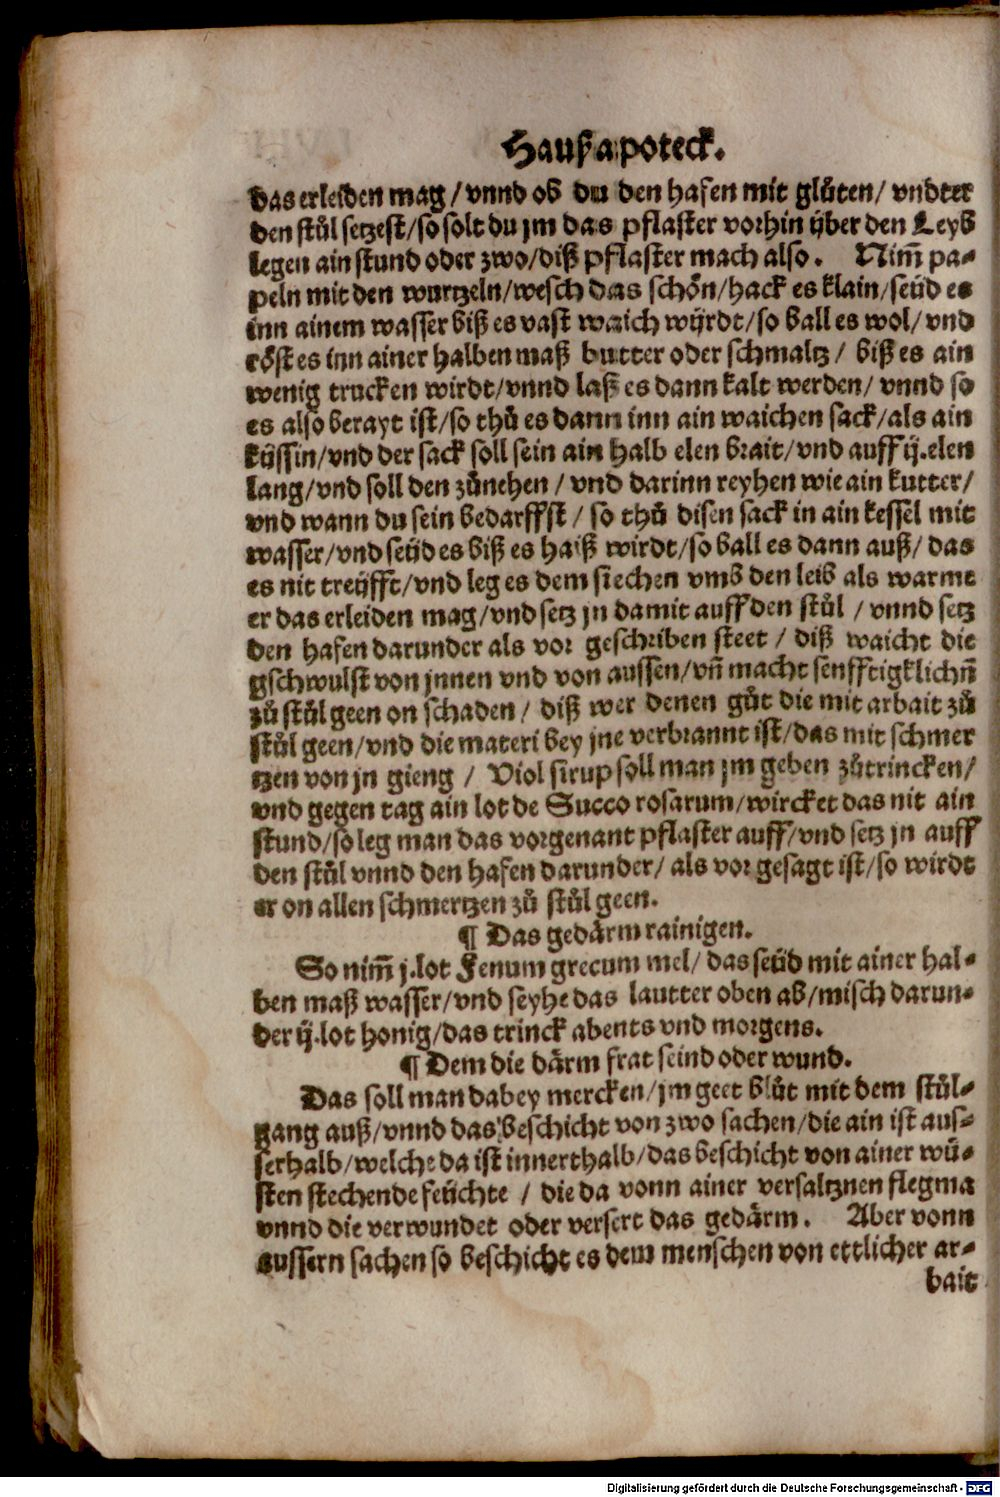 Haußapoteck.
das erleiden mag / vnnd ob du den hafen mit glůten / vndter
den stůl setzest / so solt du jm das pflaster vorhin ÿber den Leyb
legen ain stund oder zwo / diß pflaster mach also. Nim̃ pa-
peln mit den wurtzeln / wesch das schön / hack es klain / seüd es
inn ainem wasser biß es vast waich wÿrdt / so ball es wol / vnd
röst es inn ainer halben maß butter oder schmaltz / biß es ain
wenig trucken wirdt / vnnd laß es dann kalt werden / vnnd so
es also berayt ist / so thů es dann inn ain waichen sack / als ain
küssin / vnd der sack soll sein ain halb elen brait / vnd auff ij. elen
lang / vnd soll den zůnehen / vnd darinn reyhen wie ain kutter /
vnd wann du sein bedarffst / so thů disen sack in ain kessel mit
wasser / vnd seüd es biß es haiß wirdt / so ball es dann auß / das
es nit treüfft / vnd leg es dem siechen vmb den leib als warmt
er das erleiden mag / vnd setz jn damit auff den stůl / vnnd setz
den hafen darunder als vor geschriben steet / diß waicht die
gschwulst von jnnen vnd von aussen / vñ macht senfftigklichñ
zů stůl geen on schaden / diß wer denen gůt die mit arbait zů
stůl geen / vnd die materi bey jne verbrannt ist / das mit schmer
tzen von jn gieng / Viol sirup soll man jm geben zůtrincken /
vnd gegen tag ain lot de Succo rosarum / wircket das nit ain
stund / so leg man das vorgenant pflaster auff / vnd setz jn auff
den stůl vnnd den hafen darunder / als vor gesagt ist / so wirdt
er on allen schmertzen zů stůl geen.
¶ Das gedärm rainigen.
So nim̃ j. lot Fenum grecum mel / das seüd mit ainer hal-
ben maß wasser / vnd seyhe das lautter oben ab / misch darun-
der ij. lot honig / das trinck abents vnd morgens.
¶ Dem die därm frat seind oder wund.
Das soll man dabey mercken / jm geet blůt mit dem stůl-
gang auß / vnnd das beschicht von zwo sachen / die ain ist aus-
serhalb / welche da ist innerthalb / das beschicht von ainer wü-
sten stechende feüchte / die da vonn ainer versaltznen flegma
vnnd die verwundet oder versert das gedärm. Aber vonn
aussern sachen so beschicht es dem menschen von ettlicher ar-
bait
Digitalisierung gefördert durch die Deutsche Forschungsgemeinschaft - DFG